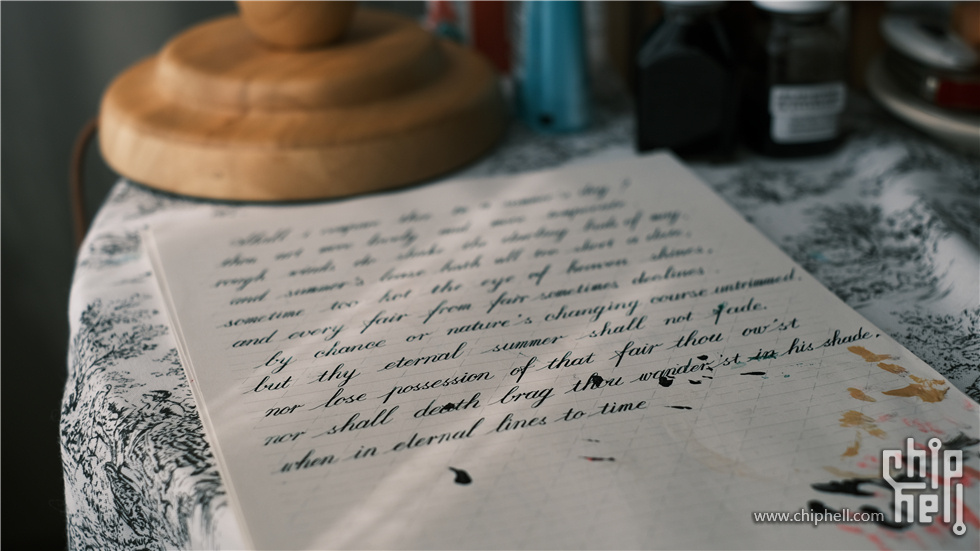 Shall i compare thee to a summer's day?
thou art more lovely and more temperate
rough winds do shake the darling buds of may,
and summer's lease hath all too short a date,
sometime too hot the eye of heaven shines,
and every fair from fair sometimes declines.
by chance or nature's changing course untrimmed.
but thy eternal summer shall not fade.
nor lose possession of that fair thou ow'st
nor shall death brag thou wander'st in his shade.
when in eternal lines to time
www.chiphell.com
chip hell